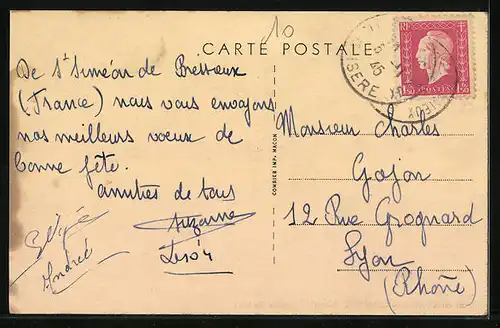 10
CARTE POSTALE
De St Siméon de Bressieux
(France) nous vous envoyons
nos meilleurs voeux de
bonne fête.
amitiés de tous
Suzanne
André
COMBIER IMP. MACON
Monsieur Charles
Gojon
12 Rue Grognard
Lyon
(Rhône)
ISERE
45
RF
POSTES
1F50 1F50